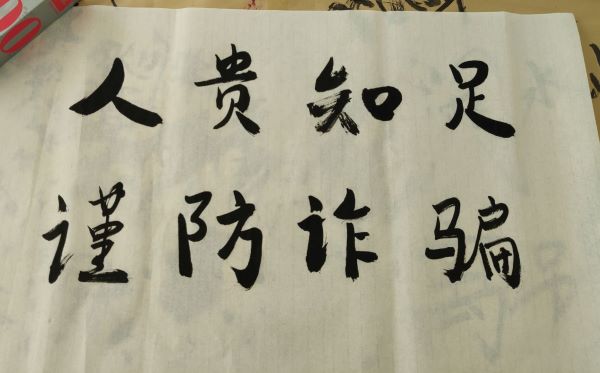 人贵知足
谨防诈骗